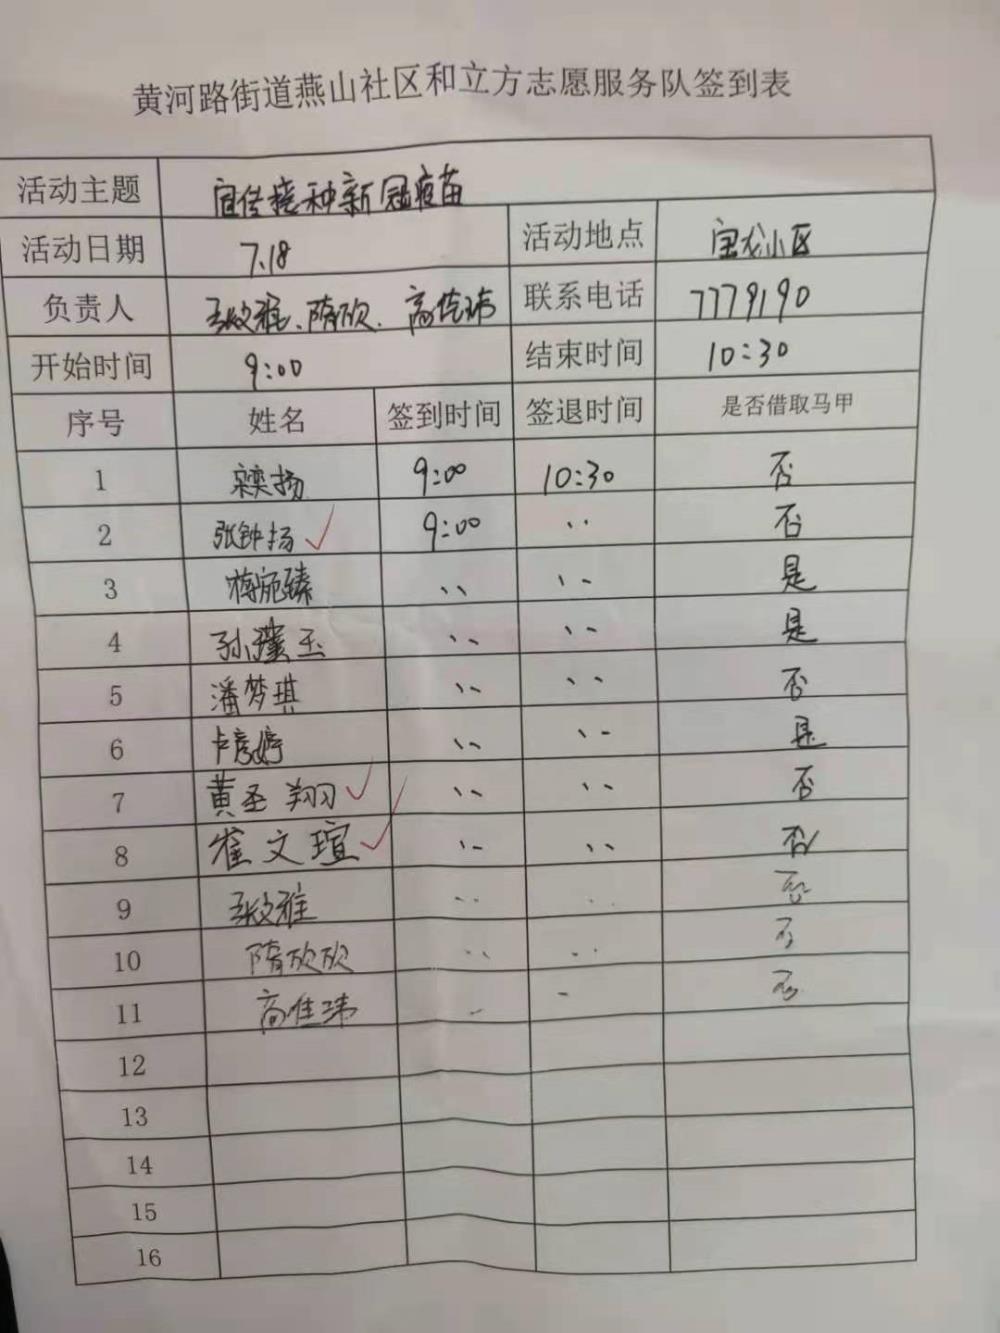 黄河路街道燕山社区和立方志愿服务队签到表
活动主题 宣传接种新冠疫苗
活动日期 7.18 活动地点 宝龙小区
负责人 张文雅、隋欣、高佳玮 联系电话 7779190
开始时间 9:00 结束时间 10:30
序号 姓名 签到时间 签退时间 是否借取马甲
1 栾扬 9:00 10:30 否
2 张钟扬 ✓ 9:00 、、 否
3 、、 、、 是
4 孙璞玉 、、 、、 是
5 潘梦琪 、、 、、 否
6 卢彦婷 、、 、、 是
7 黄圣翔 ✓ 、、 、、 否
8 崔文瑄 ✓ 、、 、、 否
9 张文雅 、、 、、 否
10 隋欣欣 、、 、、 否
11 高佳玮 - - 否
12
13
14
15
16